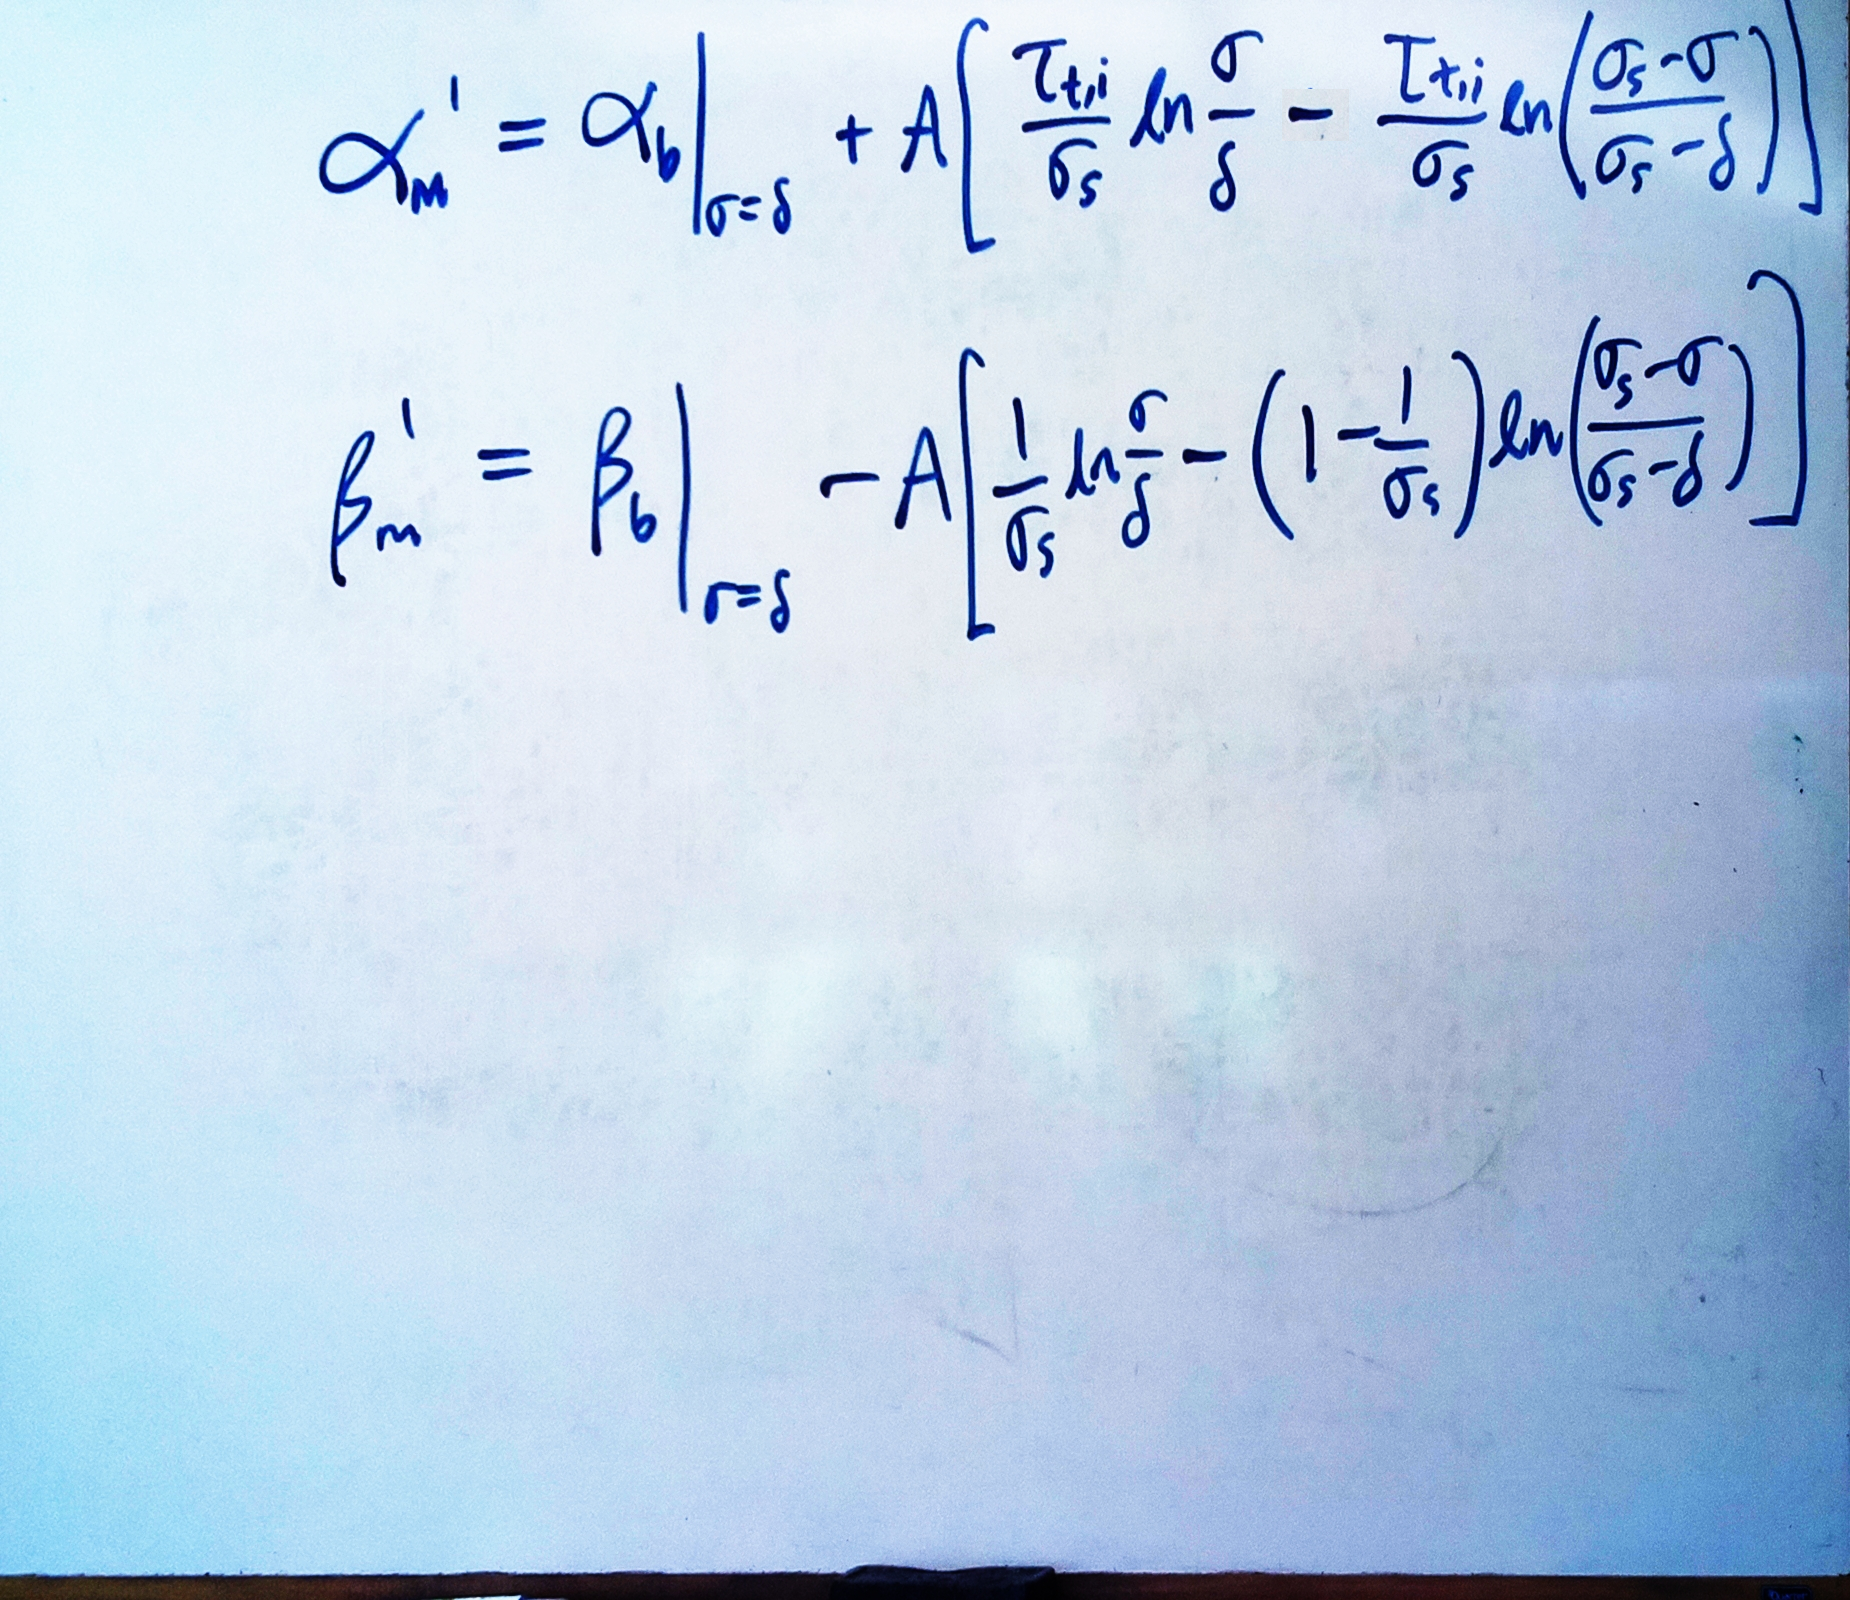 α_m' = α_b|_{σ=δ} + A[ τ_{t,i}/σ_s ln σ/δ - τ_{t,i}/σ_s ln( (σ_s-σ)/(σ_s-δ) ) ]
β_m' = β_b|_{σ=δ} - A[ 1/σ_s ln σ/δ - (1 - 1/σ_s) ln( (σ_s-σ)/(σ_s-δ) ) ]